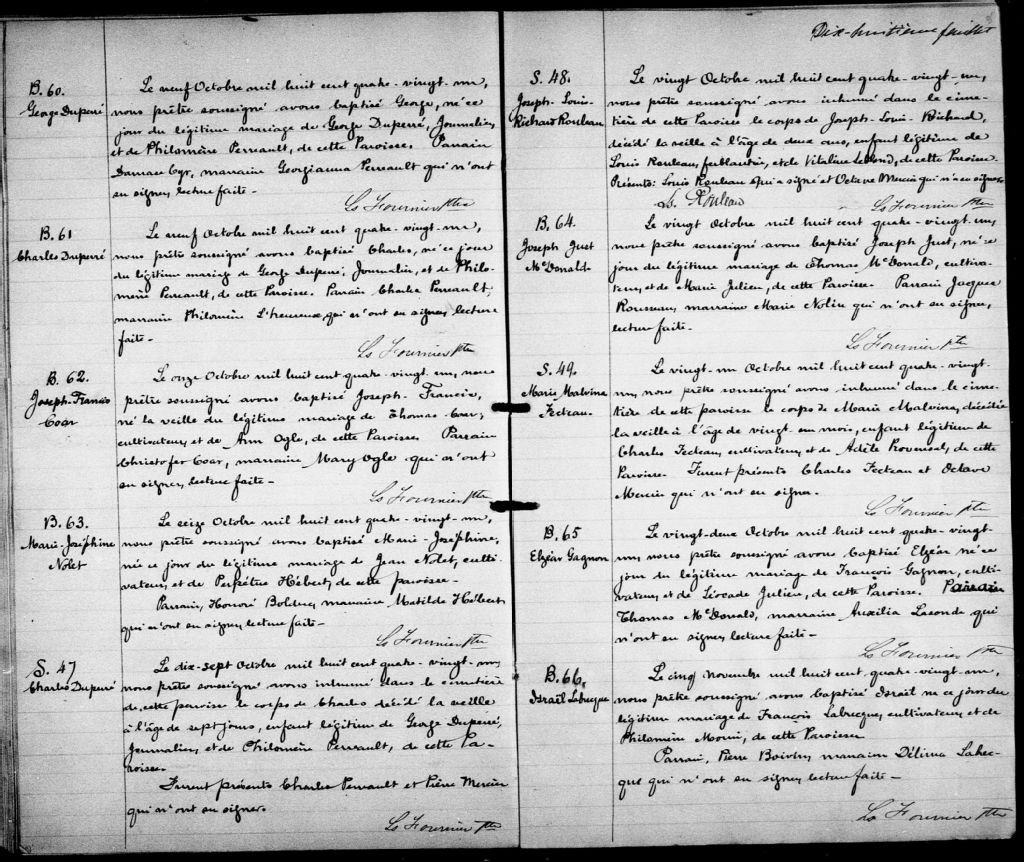 B. 60.
George Duperré
Le neuf Octobre mil huit cent quatre-vingt-un,
nous prêtre soussigné avons baptisé George, né ce
jour du légitime mariage de George Duperré, Journalier,
et de Philomère Perrault, de cette Paroisse. Parrain
Damase Cyr, marraine Georgianna Perreault qui n'ont
su signer, lecture faite -
Ls Fournier Ptre
B. 61
Charles Duperré
Le neuf Octobre mil huit cent quatre-vingt-un,
nous prêtre soussigné avons baptisé Charles, né ce jour
du légitime mariage de George Duperré, Journalier, et de Philo-
mère Perreault, de cette Paroisse. Parrain Charles Perreault,
marraine Philomère L'heureux, qui n'ont su signer, lecture
faite -
Ls Fournier Ptre
B. 62.
Joseph-Francis
Coar
Le onze Octobre mil huit cent quatre-vingt-un, nous
prêtre soussigné avons baptisé Joseph-Francis,
né la veille du légitime mariage de Thomas Coar,
cultivateur, et de Ann Ogle, de cette Paroisse. Parrain
Christofer Coar, marraine Mary Ogle qui n'ont
su signer, lecture faite -
Ls Fournier Ptre
B. 63.
Marie-Joséphine
Nolet
Le seize Octobre mil huit cent quatre-vingt-un,
nous prêtre soussigné avons baptisé Marie-Joséphine,
née ce jour du légitime mariage de Jean Nolet, culti-
vateur, et de Perpétue Hébert, de cette paroisse -
Parrain, Honoré Bolduc, marraine Matilde Hébert,
qui n'ont su signer, lecture faite -
Ls Fournier Ptre
S. 47
Charles Duperré
Le dix-sept Octobre mil huit cent quatre-vingt-un,
nous prêtre soussigné avons inhumé dans le cimetière
de cette paroisse le corps de Charles décédé la veille
à l'âge de sept jours, enfant légitime de George Duperré,
Journalier, et de Philomère Perrault, de cette Pa-
roisse.
Furent présents Charles Perrault et Pierre Mercier
qui n'ont su signer.
Ls Fournier Ptre
Dix-huitième feuillet
S. 48.
Joseph-Louis-
Richard Rouleau
Le vingt Octobre mil huit cent quatre-vingt-un,
nous prêtre soussigné avons inhumé dans le cime-
tière de cette Paroisse le corps de Joseph-Louis-Richard,
décédé la veille à l'âge de deux ans, enfant légitime de
Louis Rouleau, ferblantier, et de Vitaline Leblond, de cette Paroisse.
Présents: Louis Rouleau qui a signé et Octave Mercier qui n'a su signer.
Ls. Rouleau
Ls Fournier Ptre
B. 64.
Joseph Juet
McDonald
Le vingt Octobre mil huit cent quatre-vingt-un,
nous prêtre soussigné avons baptisé Joseph Juet, né ce
jour du légitime mariage de Thomas McDonald, cultiva-
teur, et de Marie Julien, de cette Paroisse. Parrain Jacques
Rousseau, marraine Marie Nolin qui n'ont su signer,
lecture faite -
Ls Fournier Ptre
S. 49.
Marie Malvina
Fecteau
Le vingt-un Octobre mil huit cent quatre-vingt-
un, nous prêtre soussigné avons inhumé dans le cime-
tière de cette paroisse le corps de Marie Malvina, décédée
la veille à l'âge de vingt-un mois, enfant légitime de
Charles Fecteau, cultivateur, et de Adèle Roussel, de cette
Paroisse - Furent présents Charles Fecteau et Octave
Mercier qui n'ont su signer.
Ls Fournier Ptre
B. 65
Elzéar Gagnon
Le vingt-deux Octobre mil huit cent quatre-vingt-
un, nous prêtre soussigné avons baptisé Elzéar né ce
jour du légitime mariage de François Gagnon, culti-
vateur, et de Léocade Julien, de cette Paroisse. Parrain
Thomas McDonald, marraine Auxilia Lasonde qui
n'ont su signer, lecture faite -
Ls Fournier Ptre
B. 66.
Israël Labrecque
Le cinq Novembre mil huit cent quatre-vingt-un,
nous prêtre soussigné avons baptisé Israël né ce jour du
légitime mariage de François Labrecque, cultivateur, et de
Philomène Morin, de cette Paroisse
Parrain, Pierre Boivin, marraine Délima Labrec-
que qui n'ont su signer, lecture faite -
Ls Fournier Ptre